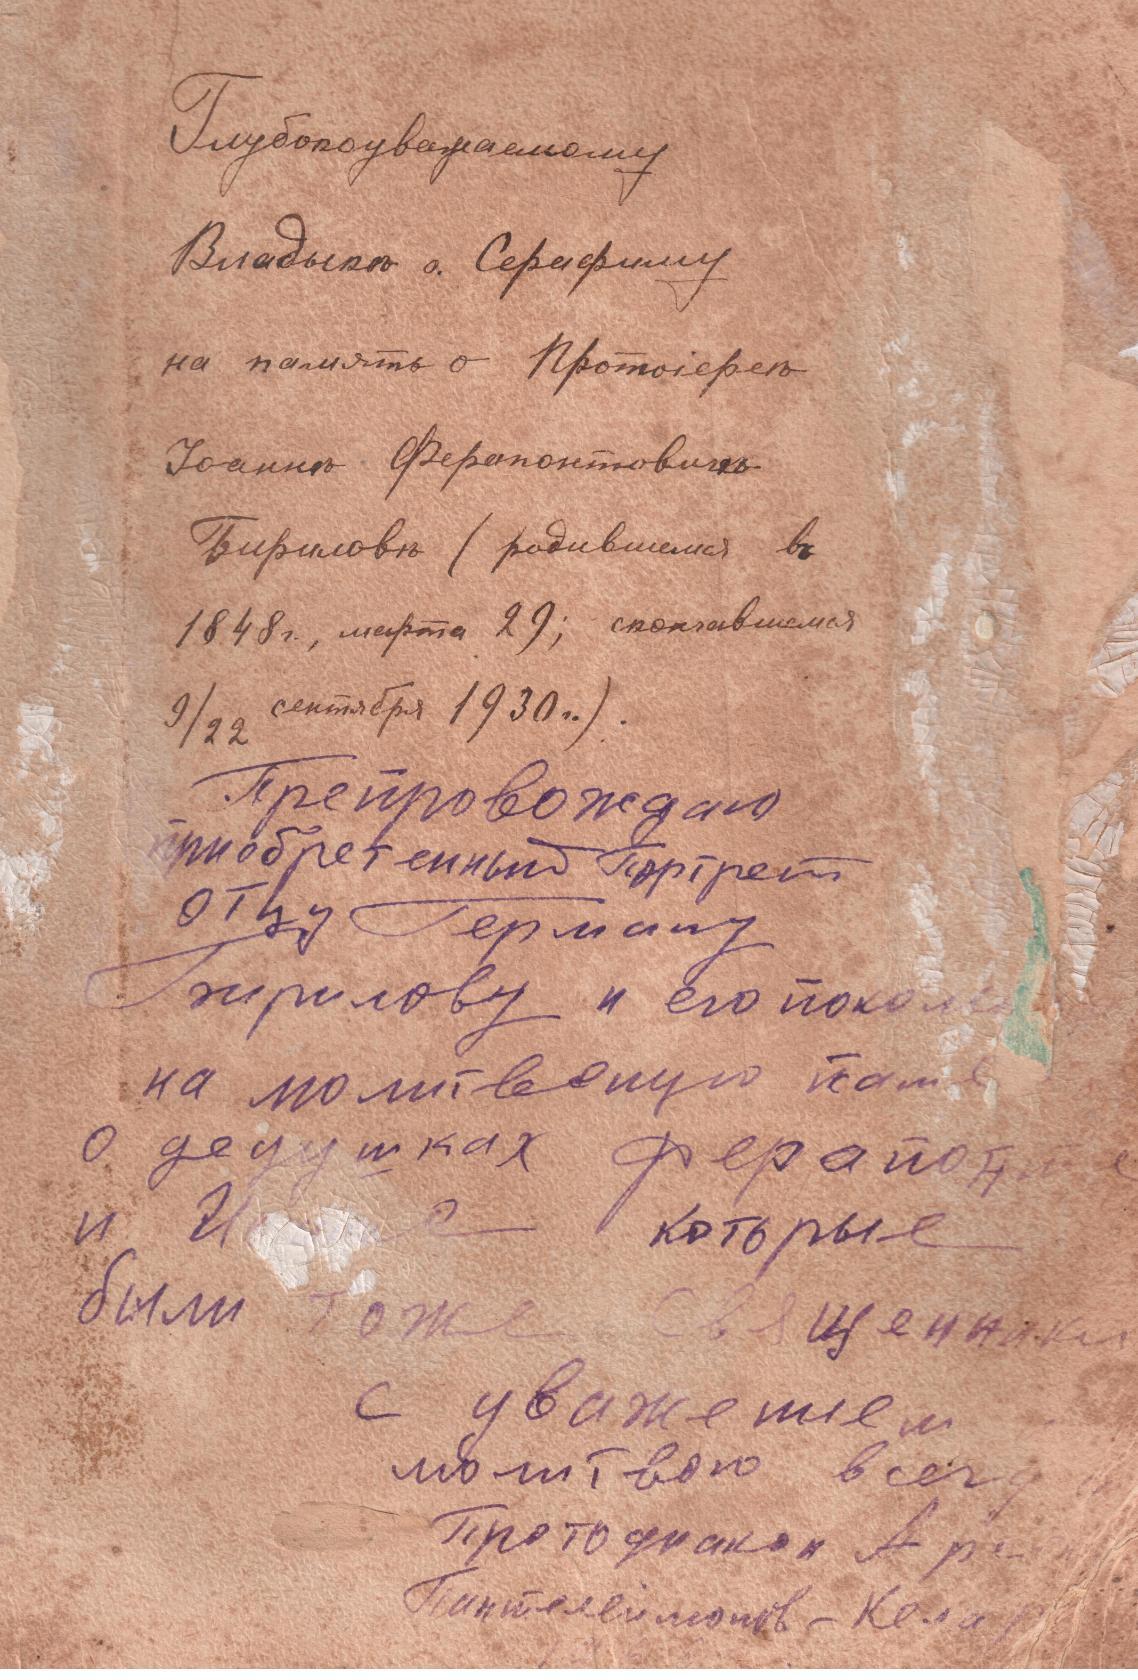 Глубокоуважаемому
Владыкѣ о. Серафиму
на память о Протоіереѣ
Іоаннѣ Ферапонтовичѣ
Бириловѣ (родившемся въ
1848 г., марта 29; скончавшемся
9/22 сентября 1930 г.).
Препровождаю
приобретенный Портрет
отцу Герману
и его
на молитвеную
о дедушках
и которые
были тоже священники
с уважением
молитвою
Протодиакон
Пантелеймонов –